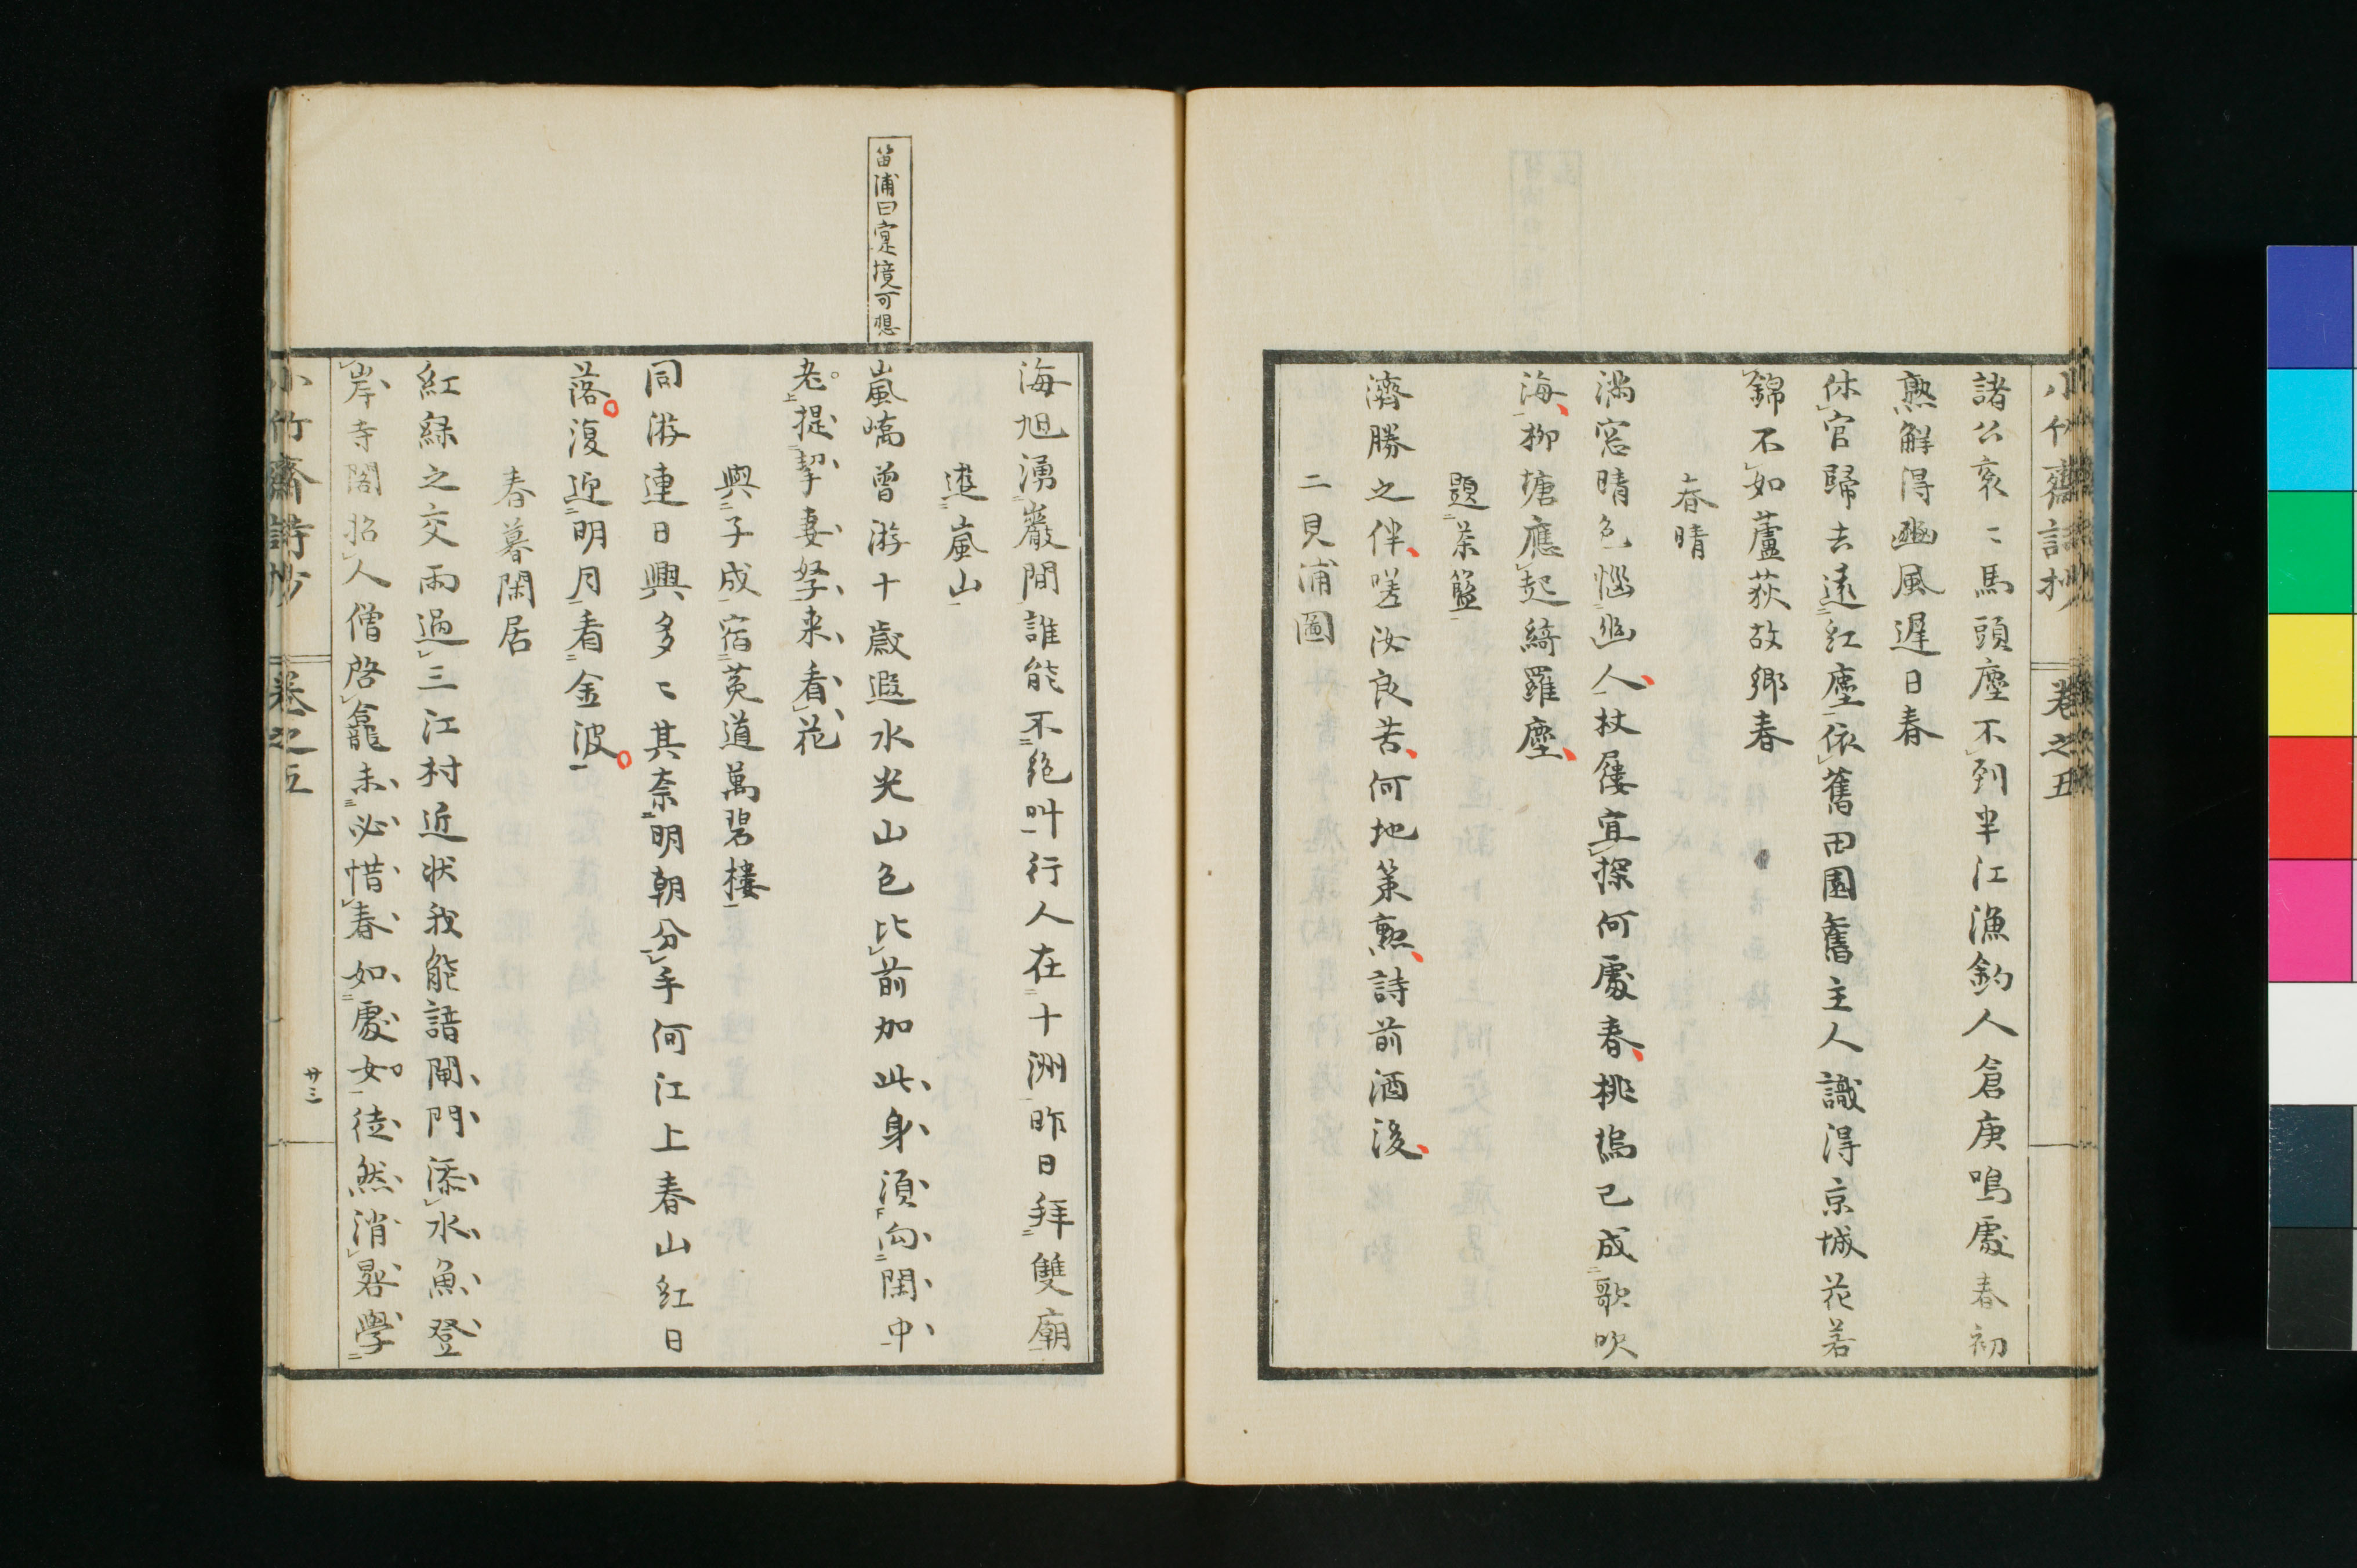 小竹齋詩抄　卷之五
諸公衮〻馬頭塵不到半江漁釣人倉庚鳴處春初
熟解得幽風遲日春
休官歸去遠紅塵依舊田園舊主人識得京城花若
錦不如蘆荻故鄉春
春晴
滿窓晴色惱幽人杖屨宜探何處春桃塢已成歌吹
海柳塘應起綺羅塵
題茶籃
濟勝之伴嗟汝良苦何地策勲詩前酒後
二見浦圖
海旭湧巖間誰能不絶叫行人在十洲昨日拜雙廟
遊嵐山
嵐嶠曾游十歲遐水光山色比前加此身須向閑中
老提挈妻孥来看花
與子成宿荑道萬碧樓
同游連日興多〻其奈明朝分手何江上春山紅日
落復迎明月看金波
春暮閑居
紅緑之交雨過三江村近状我能諳閘門添水魚登
岸寺閣招人僧啓龕未必惜春如處女徒然消晷學
笛浦曰寔境可想
小竹齋詩抄　卷之五
廿三